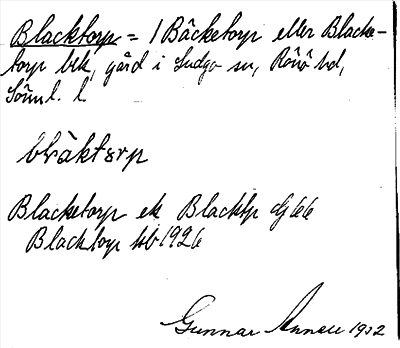 Blacktorp = 1 Bäcketorp eller Blacke-
torp bek, gård i Ludgo sn, Rönö hd,
Söml. l.
Blacketorp ek Blacktp Gj 66
Blacktorp kb 1926
Gunnar Annell 1932